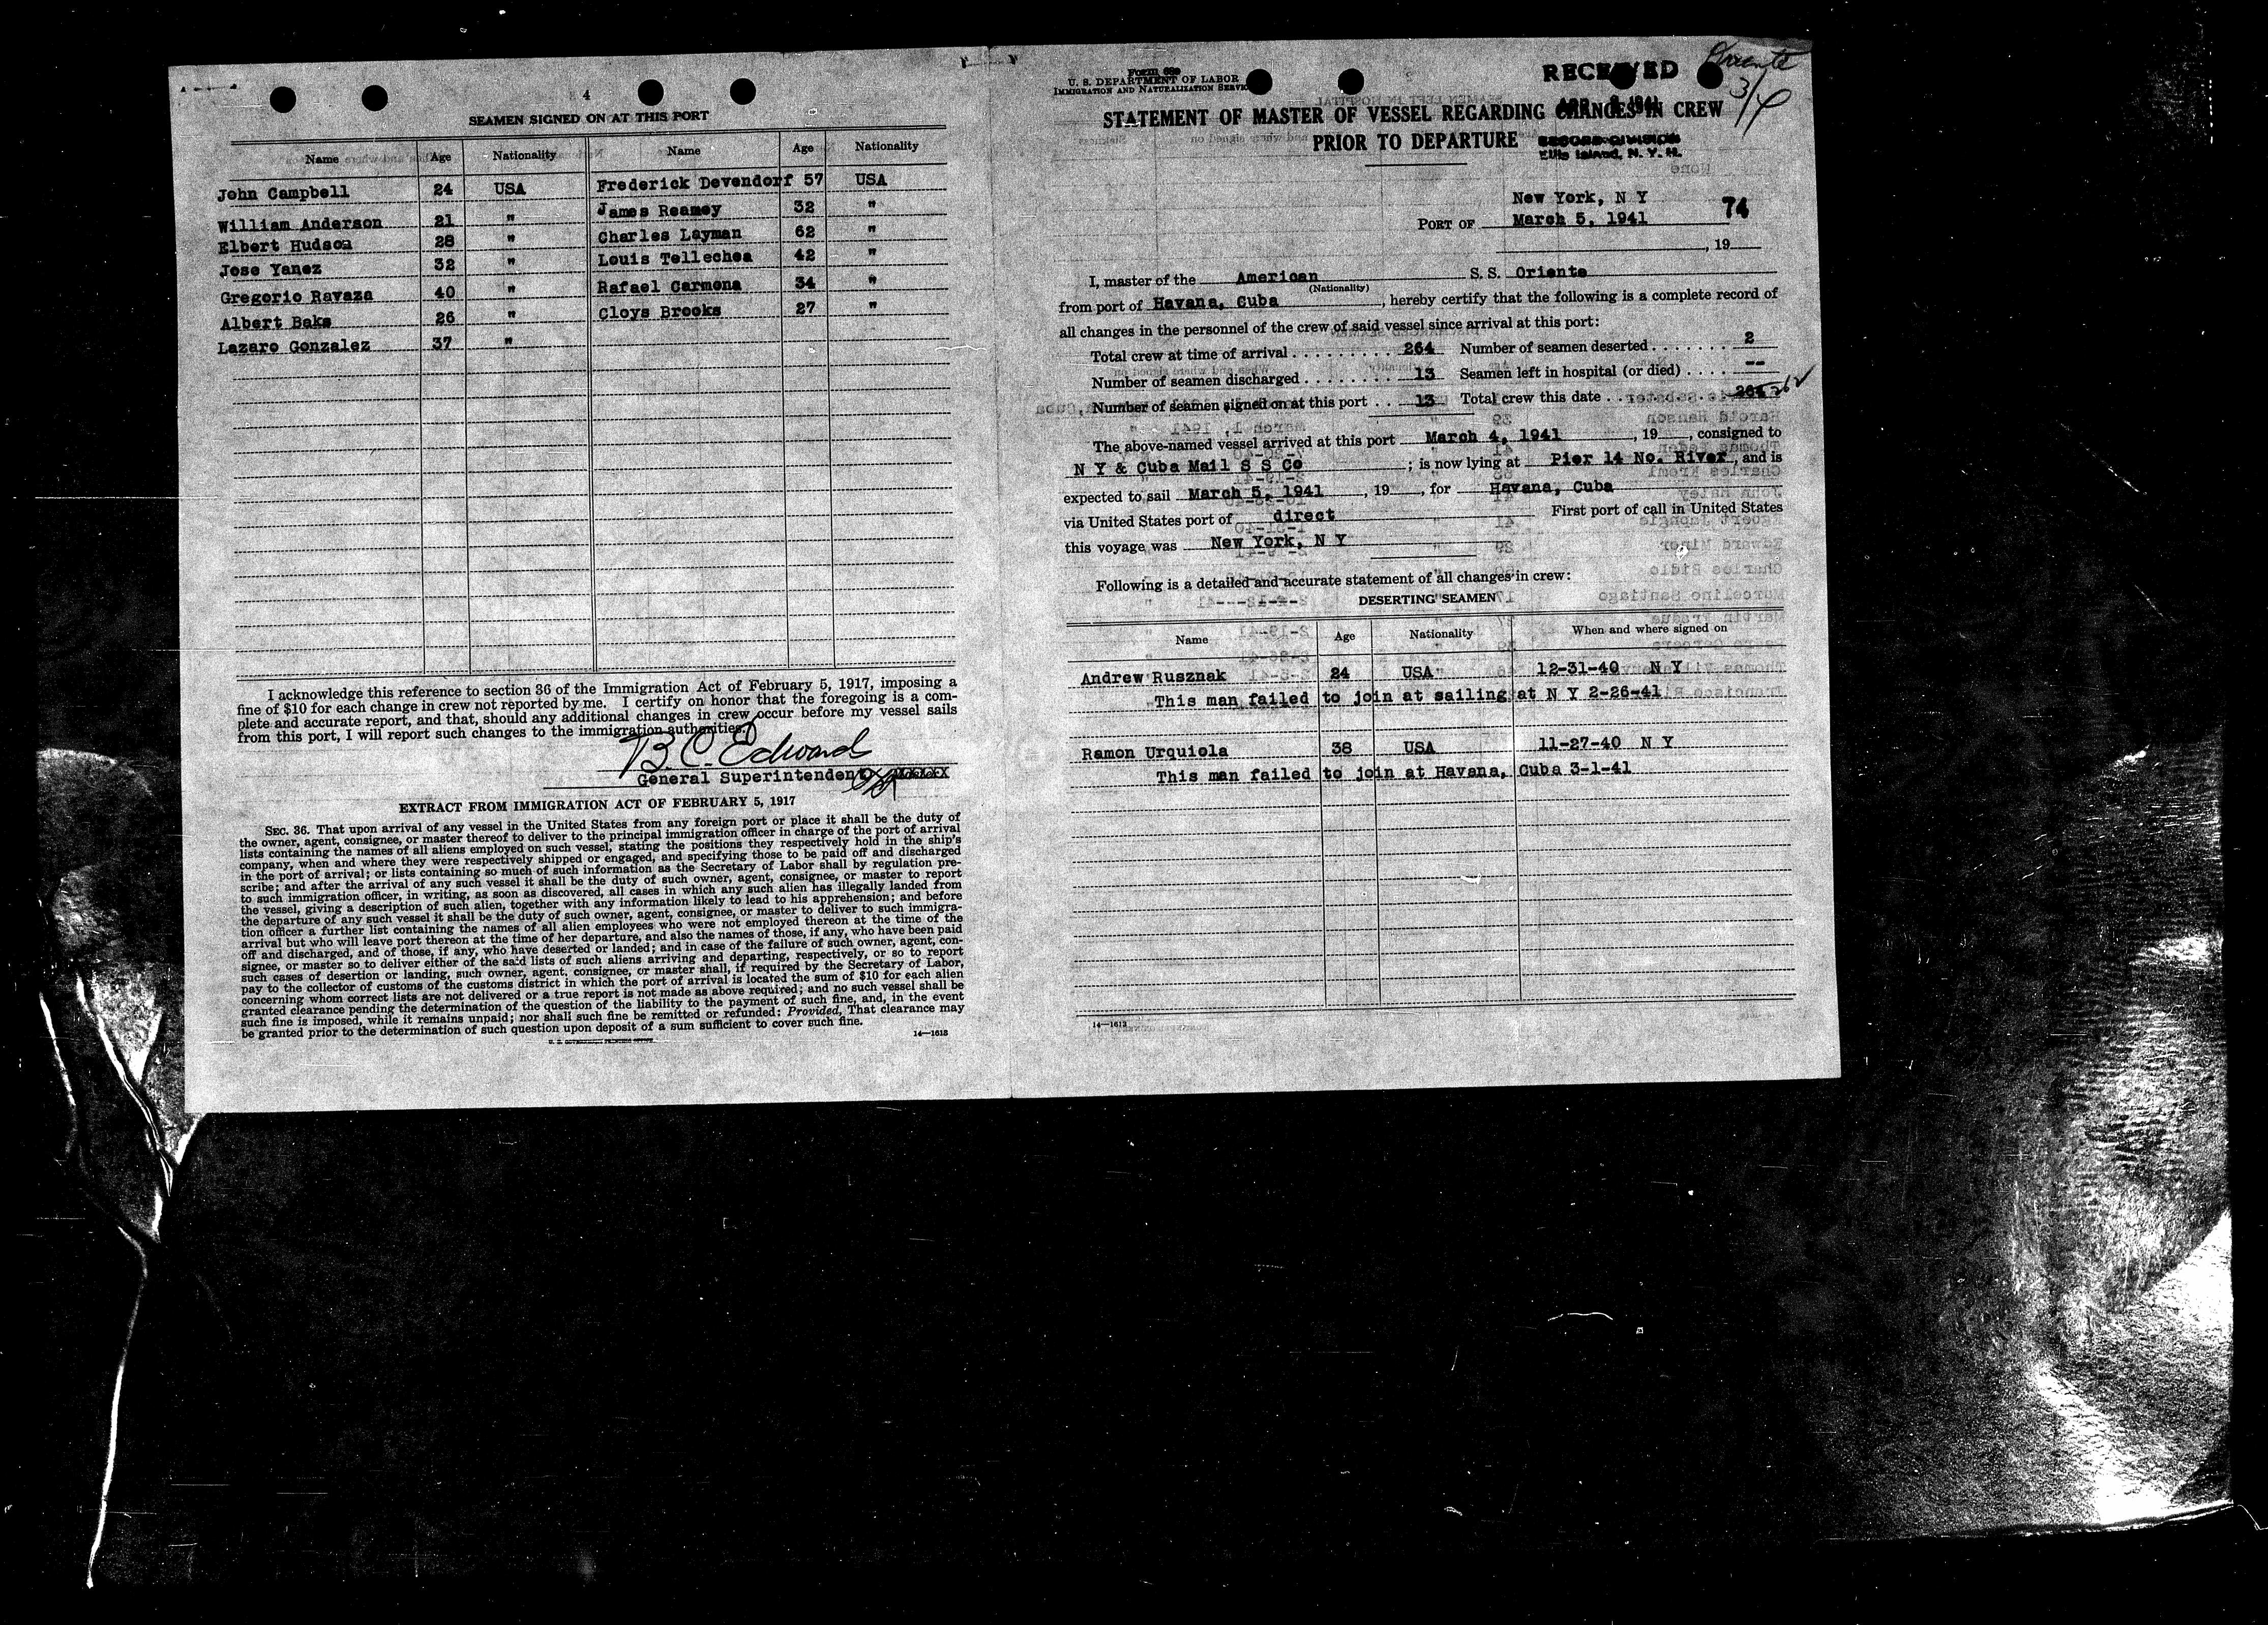 4
SEAMEN SIGNED ON AT THIS PORT
Name Age Nationality Name Age Nationality
John Campbell 24 USA Frederick Devendorf 57 USA
William Anderson 21 " James Reamey 32 "
Elbert Hudson 28 " Charles Layman 62 "
Jose Yanez 32 " Louis Tellechea 42 "
Gregorio Ravaza 40 " Rafael Carmona 34 "
Albert Baks 26 " Cloys Brooks 27 "
Lazaro Gonzalez 37 "
I acknowledge this reference to section 36 of the Immigration Act of February 5, 1917, imposing a
fine of $10 for each change in crew not reported by me. I certify on honor that the foregoing is a com-
plete and accurate report, and that, should any additional changes in crew occur before my vessel sails
from this port, I will report such changes to the immigration authorities.
B. C. Edward
General Superintendent
EXTRACT FROM IMMIGRATION ACT OF FEBRUARY 5, 1917
SEC. 36. That upon arrival of any vessel in the United States from any foreign port or place it shall be the duty of
the owner, agent, consignee, or master thereof to deliver to the principal immigration officer in charge of the port of arrival
lists containing the names of all aliens employed on such vessel, stating the positions they respectively hold in the ship's
company, when and where they were respectively shipped or engaged, and specifying those to be paid off and discharged
in the port of arrival; or lists containing so much of such information as the Secretary of Labor shall by regulation pre-
scribe; and after the arrival of any such vessel it shall be the duty of such owner, agent, consignee, or master to report
to such immigration officer, in writing, as soon as discovered, all cases in which any such alien has illegally landed from
the vessel, giving a description of such alien, together with any information likely to lead to his apprehension; and before
the departure of any such vessel it shall be the duty of such owner, agent, consignee, or master to deliver to such immigra-
tion officer a further list containing the names of all alien employees who were not employed thereon at the time of the
arrival but who will leave port thereon at the time of her departure, and also the names of those, if any, who have been paid
off and discharged, and of those, if any, who have deserted or landed; and in case of the failure of such owner, agent, con-
signee, or master so to deliver either of the said lists of such aliens arriving and departing, respectively, or so to report
such cases of desertion or landing, such owner, agent, consignee, or master shall, if required by the Secretary of Labor,
pay to the collector of customs of the customs district in which the port of arrival is located the sum of $10 for each alien
concerning whom correct lists are not delivered or a true report is not made as above required; and no such vessel shall be
granted clearance pending the determination of the question of the liability to the payment of such fine, and, in the event
such fine is imposed, while it remains unpaid; nor shall such fine be remitted or refunded: Provided, That clearance may
be granted prior to the determination of such question upon deposit of a sum sufficient to cover such fine.
14—1613
U. S. GOVERNMENT PRINTING OFFICE
Form 689
U. S. DEPARTMENT OF LABOR
IMMIGRATION AND NATURALIZATION SERVICE
RECEIVED
Oriente
3/4
1941
RECORD DIVISION
Ellis Island, N. Y. H.
STATEMENT OF MASTER OF VESSEL REGARDING CHANGES IN CREW
PRIOR TO DEPARTURE
New York, N Y
PORT OF March 5, 1941 74
, 19
I, master of the American S. S. Oriente
(Nationality)
from port of Havana, Cuba , hereby certify that the following is a complete record of
all changes in the personnel of the crew of said vessel since arrival at this port:
Total crew at time of arrival 264 Number of seamen deserted 2
Number of seamen discharged 13 Seamen left in hospital (or died) --
Number of seamen signed on at this port 13 Total crew this date 264 262
The above-named vessel arrived at this port March 4, 1941 , 19 , consigned to
N Y & Cuba Mail S S Co ; is now lying at Pier 14 No. River, and is
expected to sail March 5, 1941 , 19 , for Havana, Cuba
via United States port of direct First port of call in United States
this voyage was New York, N Y
Following is a detailed and accurate statement of all changes in crew:
DESERTING SEAMEN
Name Age Nationality When and where signed on
Andrew Rusznak 24 USA 12-31-40 N Y
This man failed to join at sailing at N Y 2-26-41
Ramon Urquiola 38 USA 11-27-40 N Y
This man failed to join at Havana, Cuba 3-1-41
14—1613